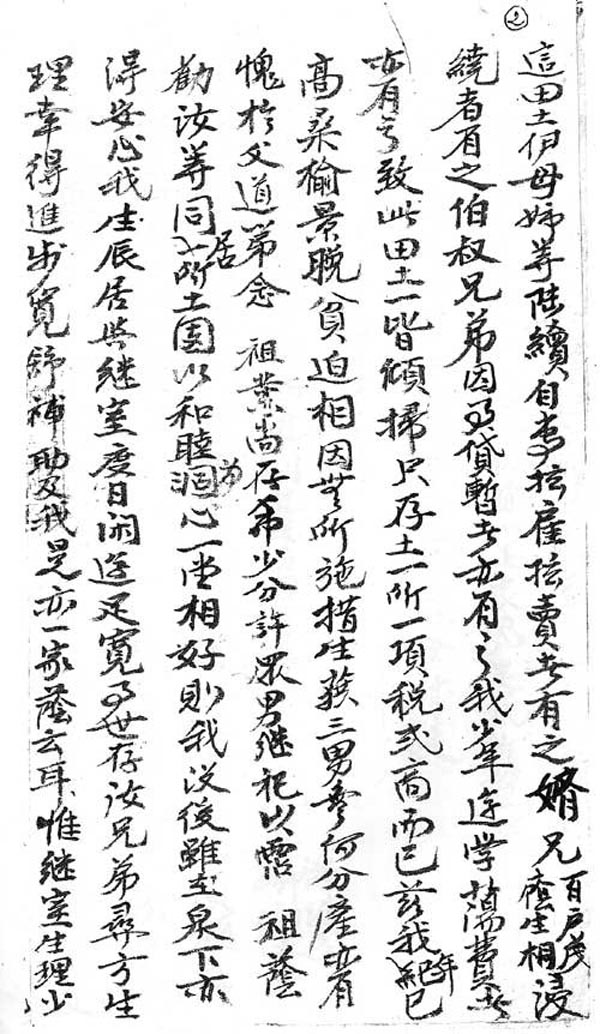 2
這田土伊母姉等陸續自專拉雇拉賣者有之婿兄百户茂蔭生相浸
繞者有之伯叔兄弟因為貸暫者亦有之我少年遊学蕩費者
亦有之致此田土一皆傾掃只存土一所一項税弍高而已兹我年紀已
高桑榆景晚貧迫相因無所施措生𫋵三男無何分產有
愧於父道第念 祖業尚存希少分許眾男継祀以霑 祖蔭
勸汝等同居一所土園以和睦為心一堂相好則我没後雖在泉下亦
得安心我生辰居與継室度日閑逰足寬為世存汝兄弟尋方生
理幸得進步寬舒補助我是亦一家蔭云耳惟継室生理少